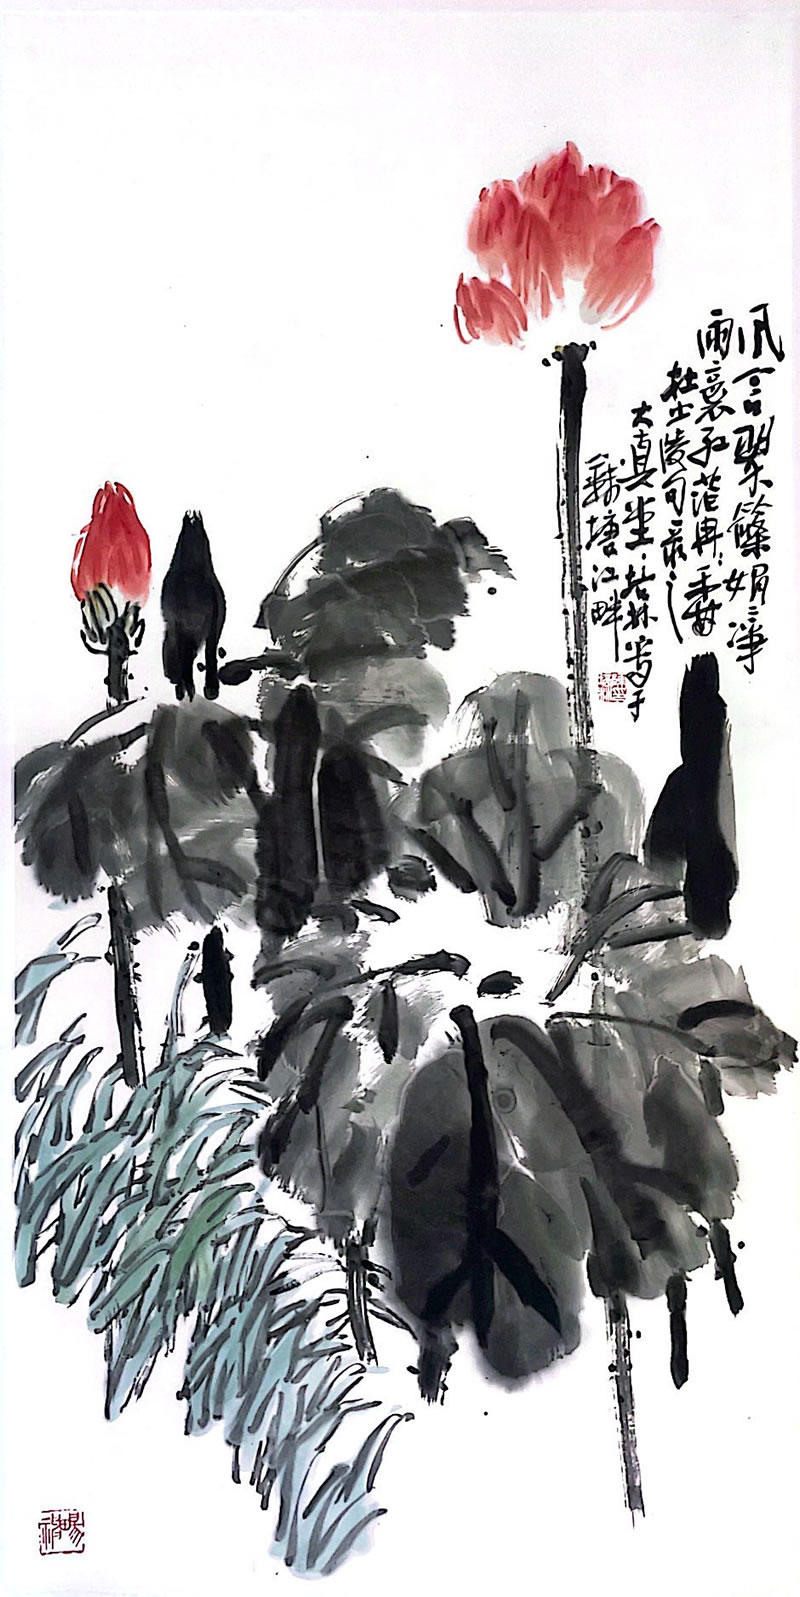 风含翠篠娟〻净
雨裛红蕖冉〻香
杜少陵句录之
大真堂若林写于
钱塘江畔